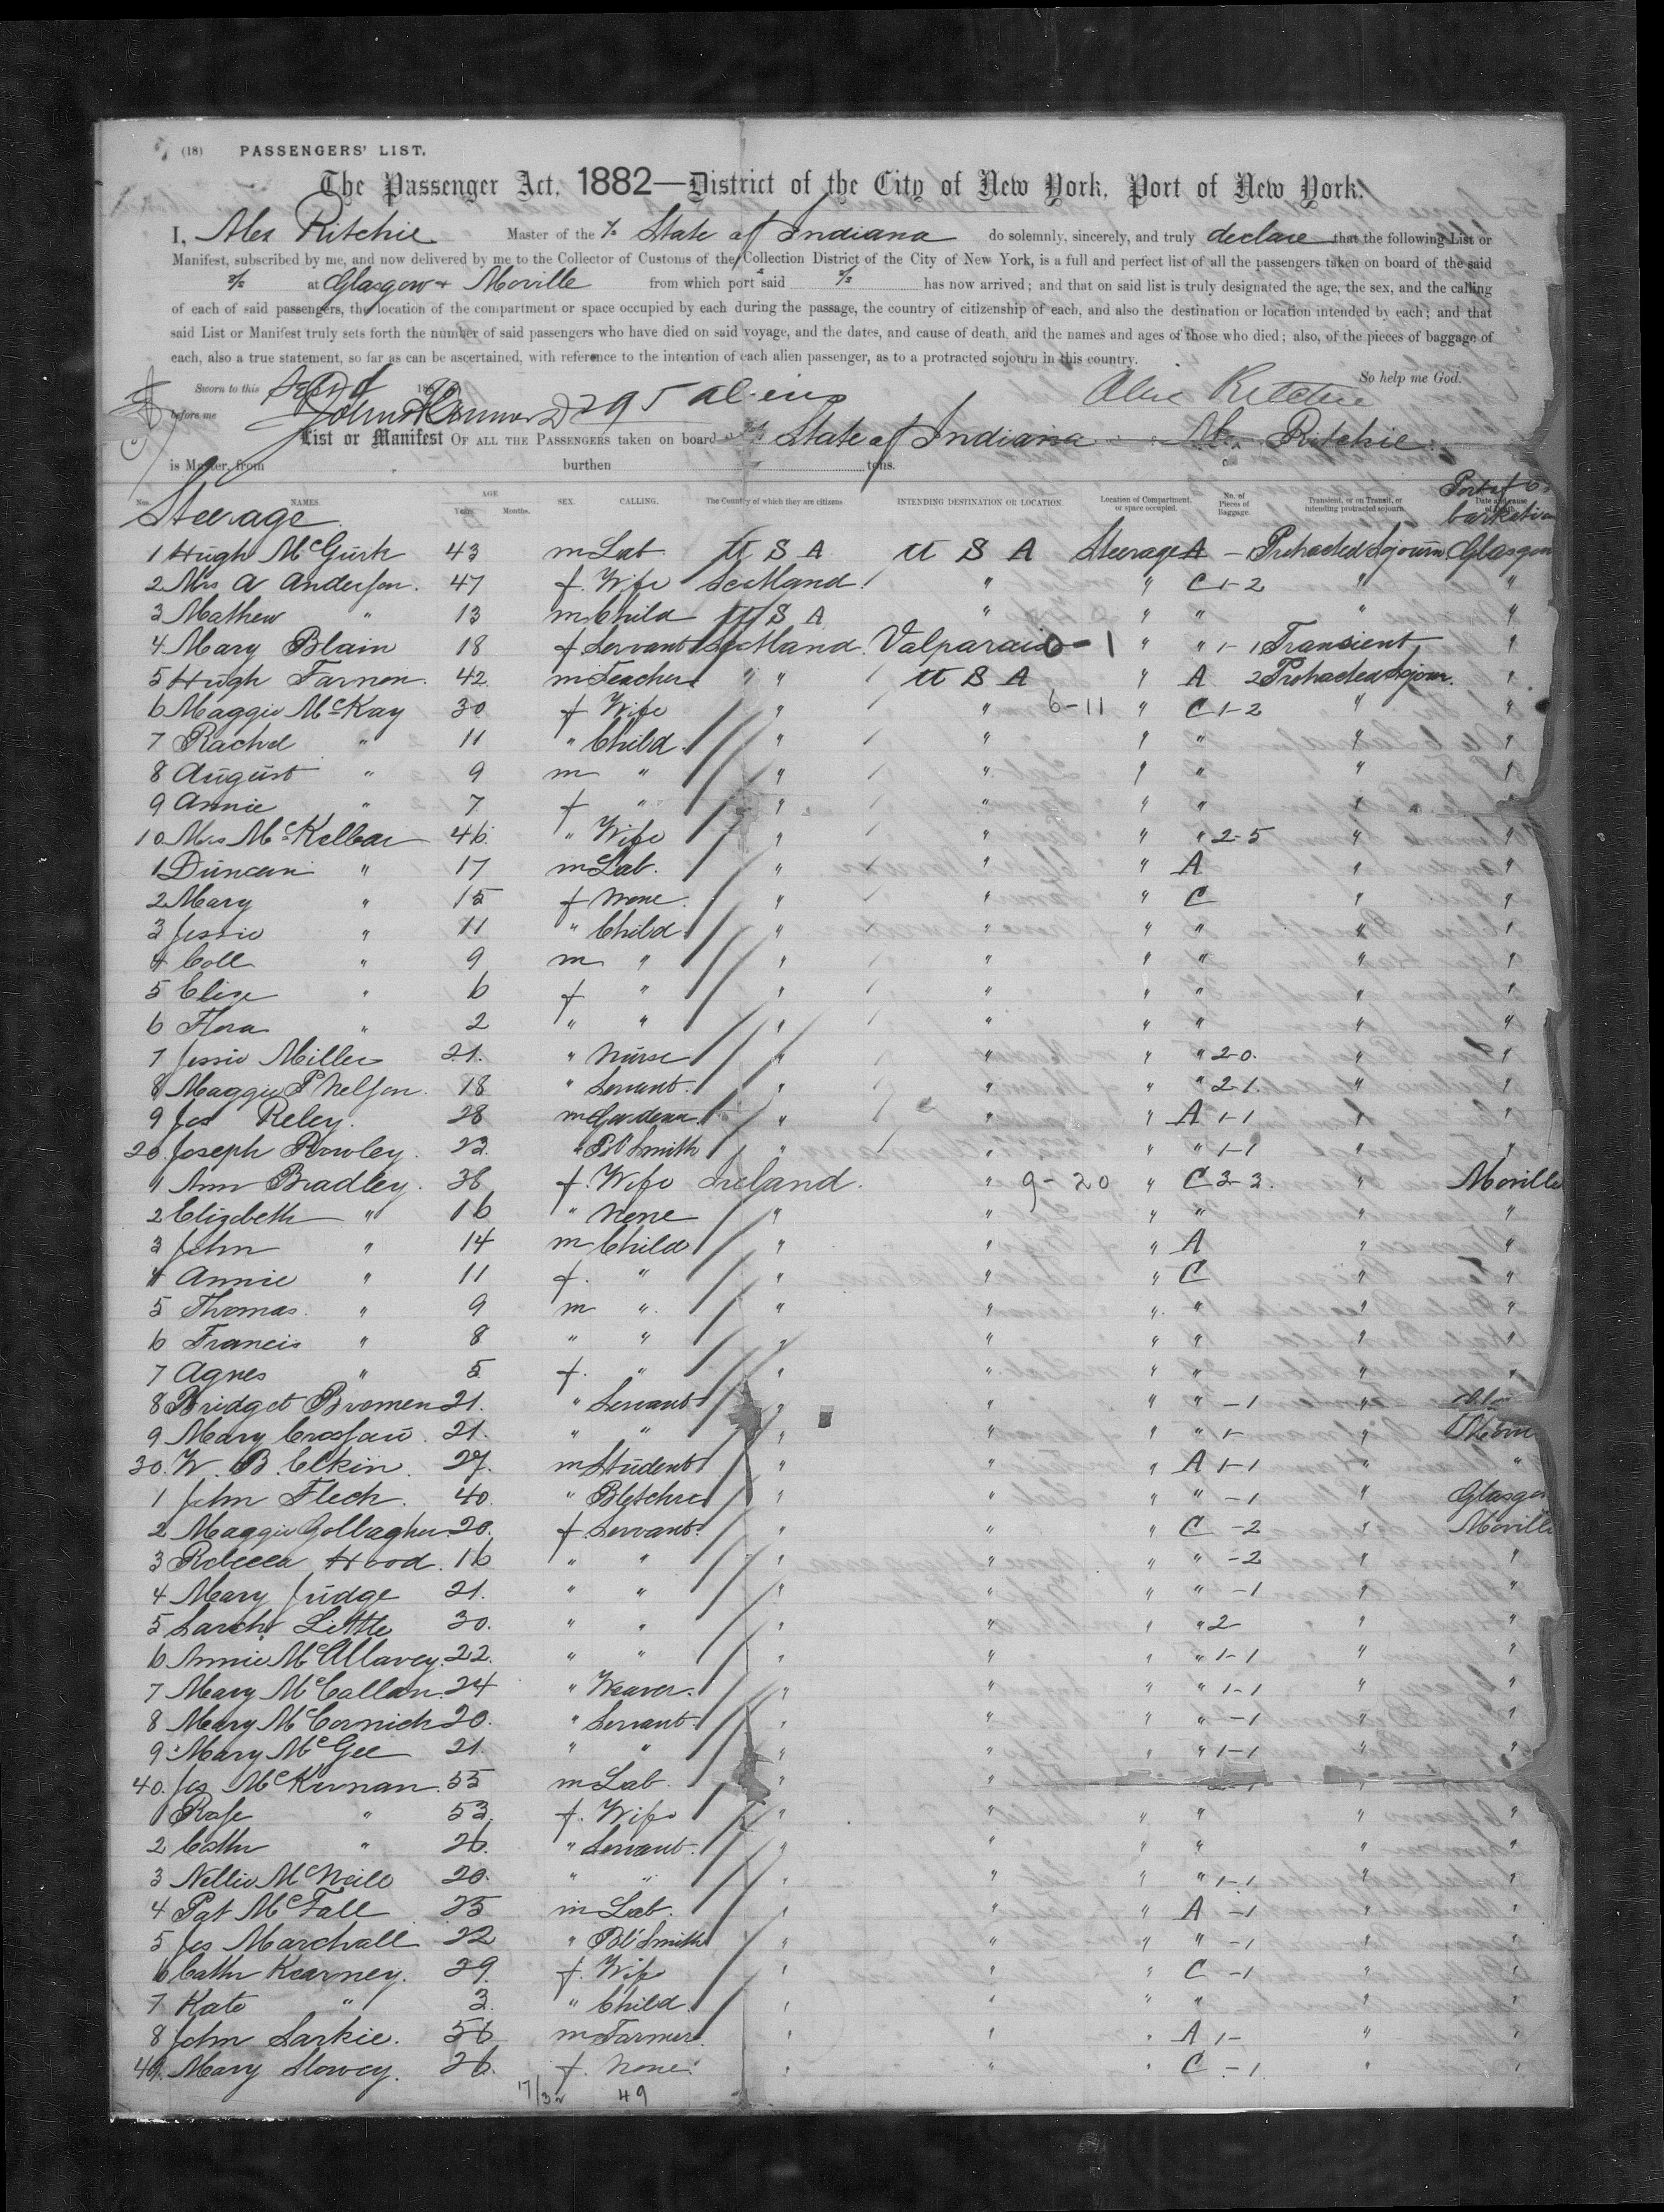 (18) PASSENGERS' LIST.
The Passenger Act, 1882—District of the City of New York, Port of New York.
I, Alex Ritchie Master of the S/S State of Indiana do solemnly, sincerely, and truly declare that the following List or
Manifest, subscribed by me, and now delivered by me to the Collector of Customs of the Collection District of the City of New York, is a full and perfect list of all the passengers taken on board of the said
S/S at Glasgow & Moville from which port said S/S has now arrived; and that on said list is truly designated the age, the sex, and the calling
of each of said passengers, the location of the compartment or space occupied by each during the passage, the country of citizenship of each, and also the destination or location intended by each; and that
said List or Manifest truly sets forth the number of said passengers who have died on said voyage, and the dates, and cause of death, and the names and ages of those who died; also, of the pieces of baggage of
each, also a true statement, so far as can be ascertained, with reference to the intention of each alien passenger, as to a protracted sojourn in this country.
So help me God.
Sworn to this 188
before me 295 aliens Alex Ritchie
List or Manifest OF ALL THE PASSENGERS taken on board State of Indiana Ritchie
is Master, from burthen tons.
Nos. NAMES. AGE Years. Months. SEX. CALLING. The Country of which they are citizens. INTENDING DESTINATION OR LOCATION. Location of Compartment, or space occupied. No. of Pieces of Baggage. Transient, or on Transit, or intending protracted sojourn. Date and cause of Death. Port of
Steerage
1 Hugh McGurk 43 m Lab U S A U S A Steerage A - Protracted Sojourn Glasgow
2 Mrs A Anderson. 47 f. Wife Scotland " " C 1-2 " "
3 Mathew " 13 m Child U S A " " " " "
4 Mary Blain 18 f Servant Scotland. Valparaiso-1 " " 1-1 Transient "
5 Hugh Farnon. 42 m Teacher " " U S A " A 2 Protracted Sojour. "
6 Maggie McKay 30 f Wife " " 6-11 " C 1-2 " "
7 Rachel " 11 " Child " " " " " "
8 August " 9 m " " " " " " "
9 Annie " 7 f " " " " " " "
10 Mrs McKellar 46. " Wife " " " " 2-5 " "
1 Duncan " 17 m Lab. " " " A " "
2 Mary " 15 f None. " " " C " "
3 Jessie " 11 " Child " " " " " "
4 Coll " 9 m " " " " " " "
5 Elize " 6 f " " " " " " "
6 Flora " 2 " " " " " " " "
7 Jessie Miller 21. " Nurse " " " " 2-0. " "
8 Maggie P Nelson. 18 " Servant. " " " " 2-1. " "
9 Jas Reley. 28 m Gardener " " " A 1-1 " "
20. Joseph Rowley. 23. " Bl Smith " " " " 1-1 " "
1 Ann Bradley. 38 f. Wife Ireland. " 9-20 " C 3-3. " Moville
2 Elizabeth " 16 " None " " " " " "
3 John " 14 m Child " " " A " "
4 Annie " 11 f. " " " " C " "
5 Thomas. " 9 m " " " " " " "
6 Francis " 8 " " " " " " " "
7 Agnes " 5 f. " " " " " " "
8 Bridget Bromen 21. " Servant " " " " -1 "
9 Mary Crossan. 21. " " " " " " 1- "
30. W. B. Elkin. 27. m Student " " " A 1-1 " "
1 John Fleck. 40. " " " " " -1 " Glasgow
2 Maggie Gollagher. 20. f. Servant. " " " C -2 " Moville
3 Rebecca Hood. 16 " " " " " " -2 " "
4 Mary Judge 21. " " " " " " -1 " "
5 Sarah Little 30. " " " " " " 2 " "
6 Annie 22. " " " " " " 1-1 " "
7 Mary McCallan. 24 " Weaver. " " " " 1-1 " "
8 Mary McCormick 20. " Servant. " " " " -1 " "
9 Mary McGee 21. " " " " " " 1-1 " "
40. Jas McKernan. 55 m Lab. " " "
1 Rose " 53. f. Wife " " " " " "
2 Cathr " 26. " Servant. " " " " " "
3 Nellie McNeill 20. " " " " " " 1-1 " "
4 Pat McFall 25 m Lab. " " " A -1 " "
5 Jas Marshall 22 " Bl Smith " " " " -1 " "
6 Cathr Kearney. 29. f. Wife " " " C -1 " "
7 Kate " 3. " Child. " " " " " "
8 John Sarkie. 56 m Farmer. " " " A 1- " "
49. Mary Slowey. 26. f. None. " " " C -1 " "
17/32 49